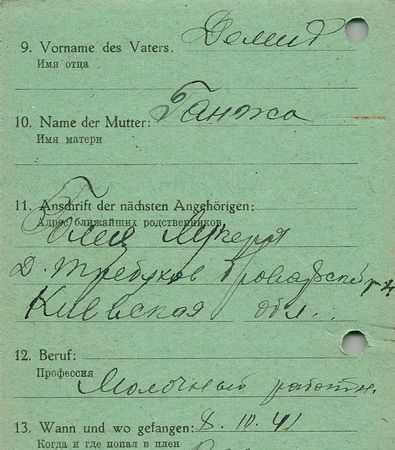 9. Vorname des Vaters. Демид
Имя отца
10. Name der Mutter: Ганжа
Имя матери
11. Anschrift der nächsten Angehörigen:
Адрес ближайших родственников
Д. Требухов Броварской р-н
Киевская обл.
12. Beruf:
Профессия
Молочный работн.
13. Wann und wo gefangen: 8. IV. 41
Когда и где попал в плен